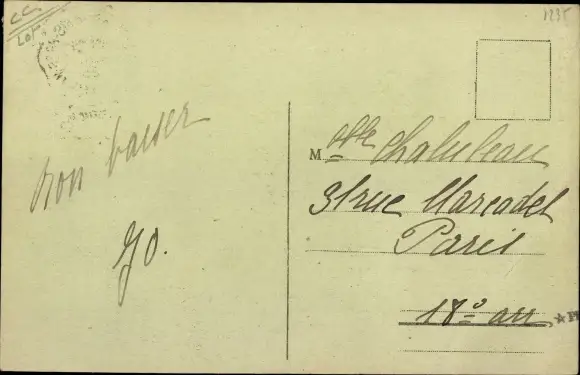 CC
Lot
1235
bon baiser
Jo.
Mlle Chaluleau
31 rue Marcadet
Paris
18º arr